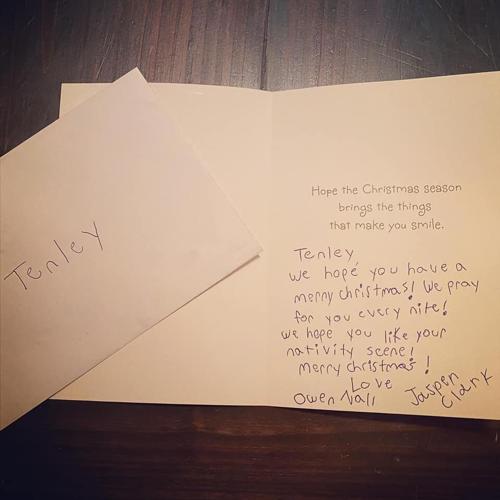 Tenley
Hope the Christmas season
brings the things
that make you smile.
Tenley
we hope you have a
merry christmas! We pray
for you every nite!
we hope you like your
nativity scene!
merry christmas!
Love
Owen Nall
Jaspen
Clark